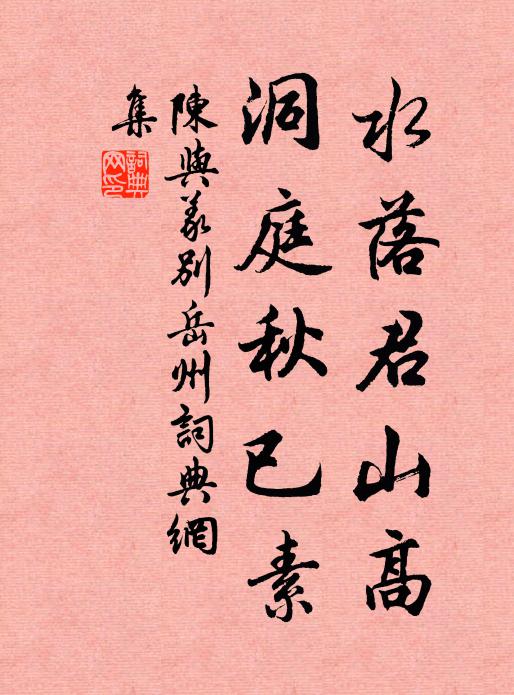 水落君山高
洞庭秋已素
陳與义別岳州詞典網
集
詞典
网印